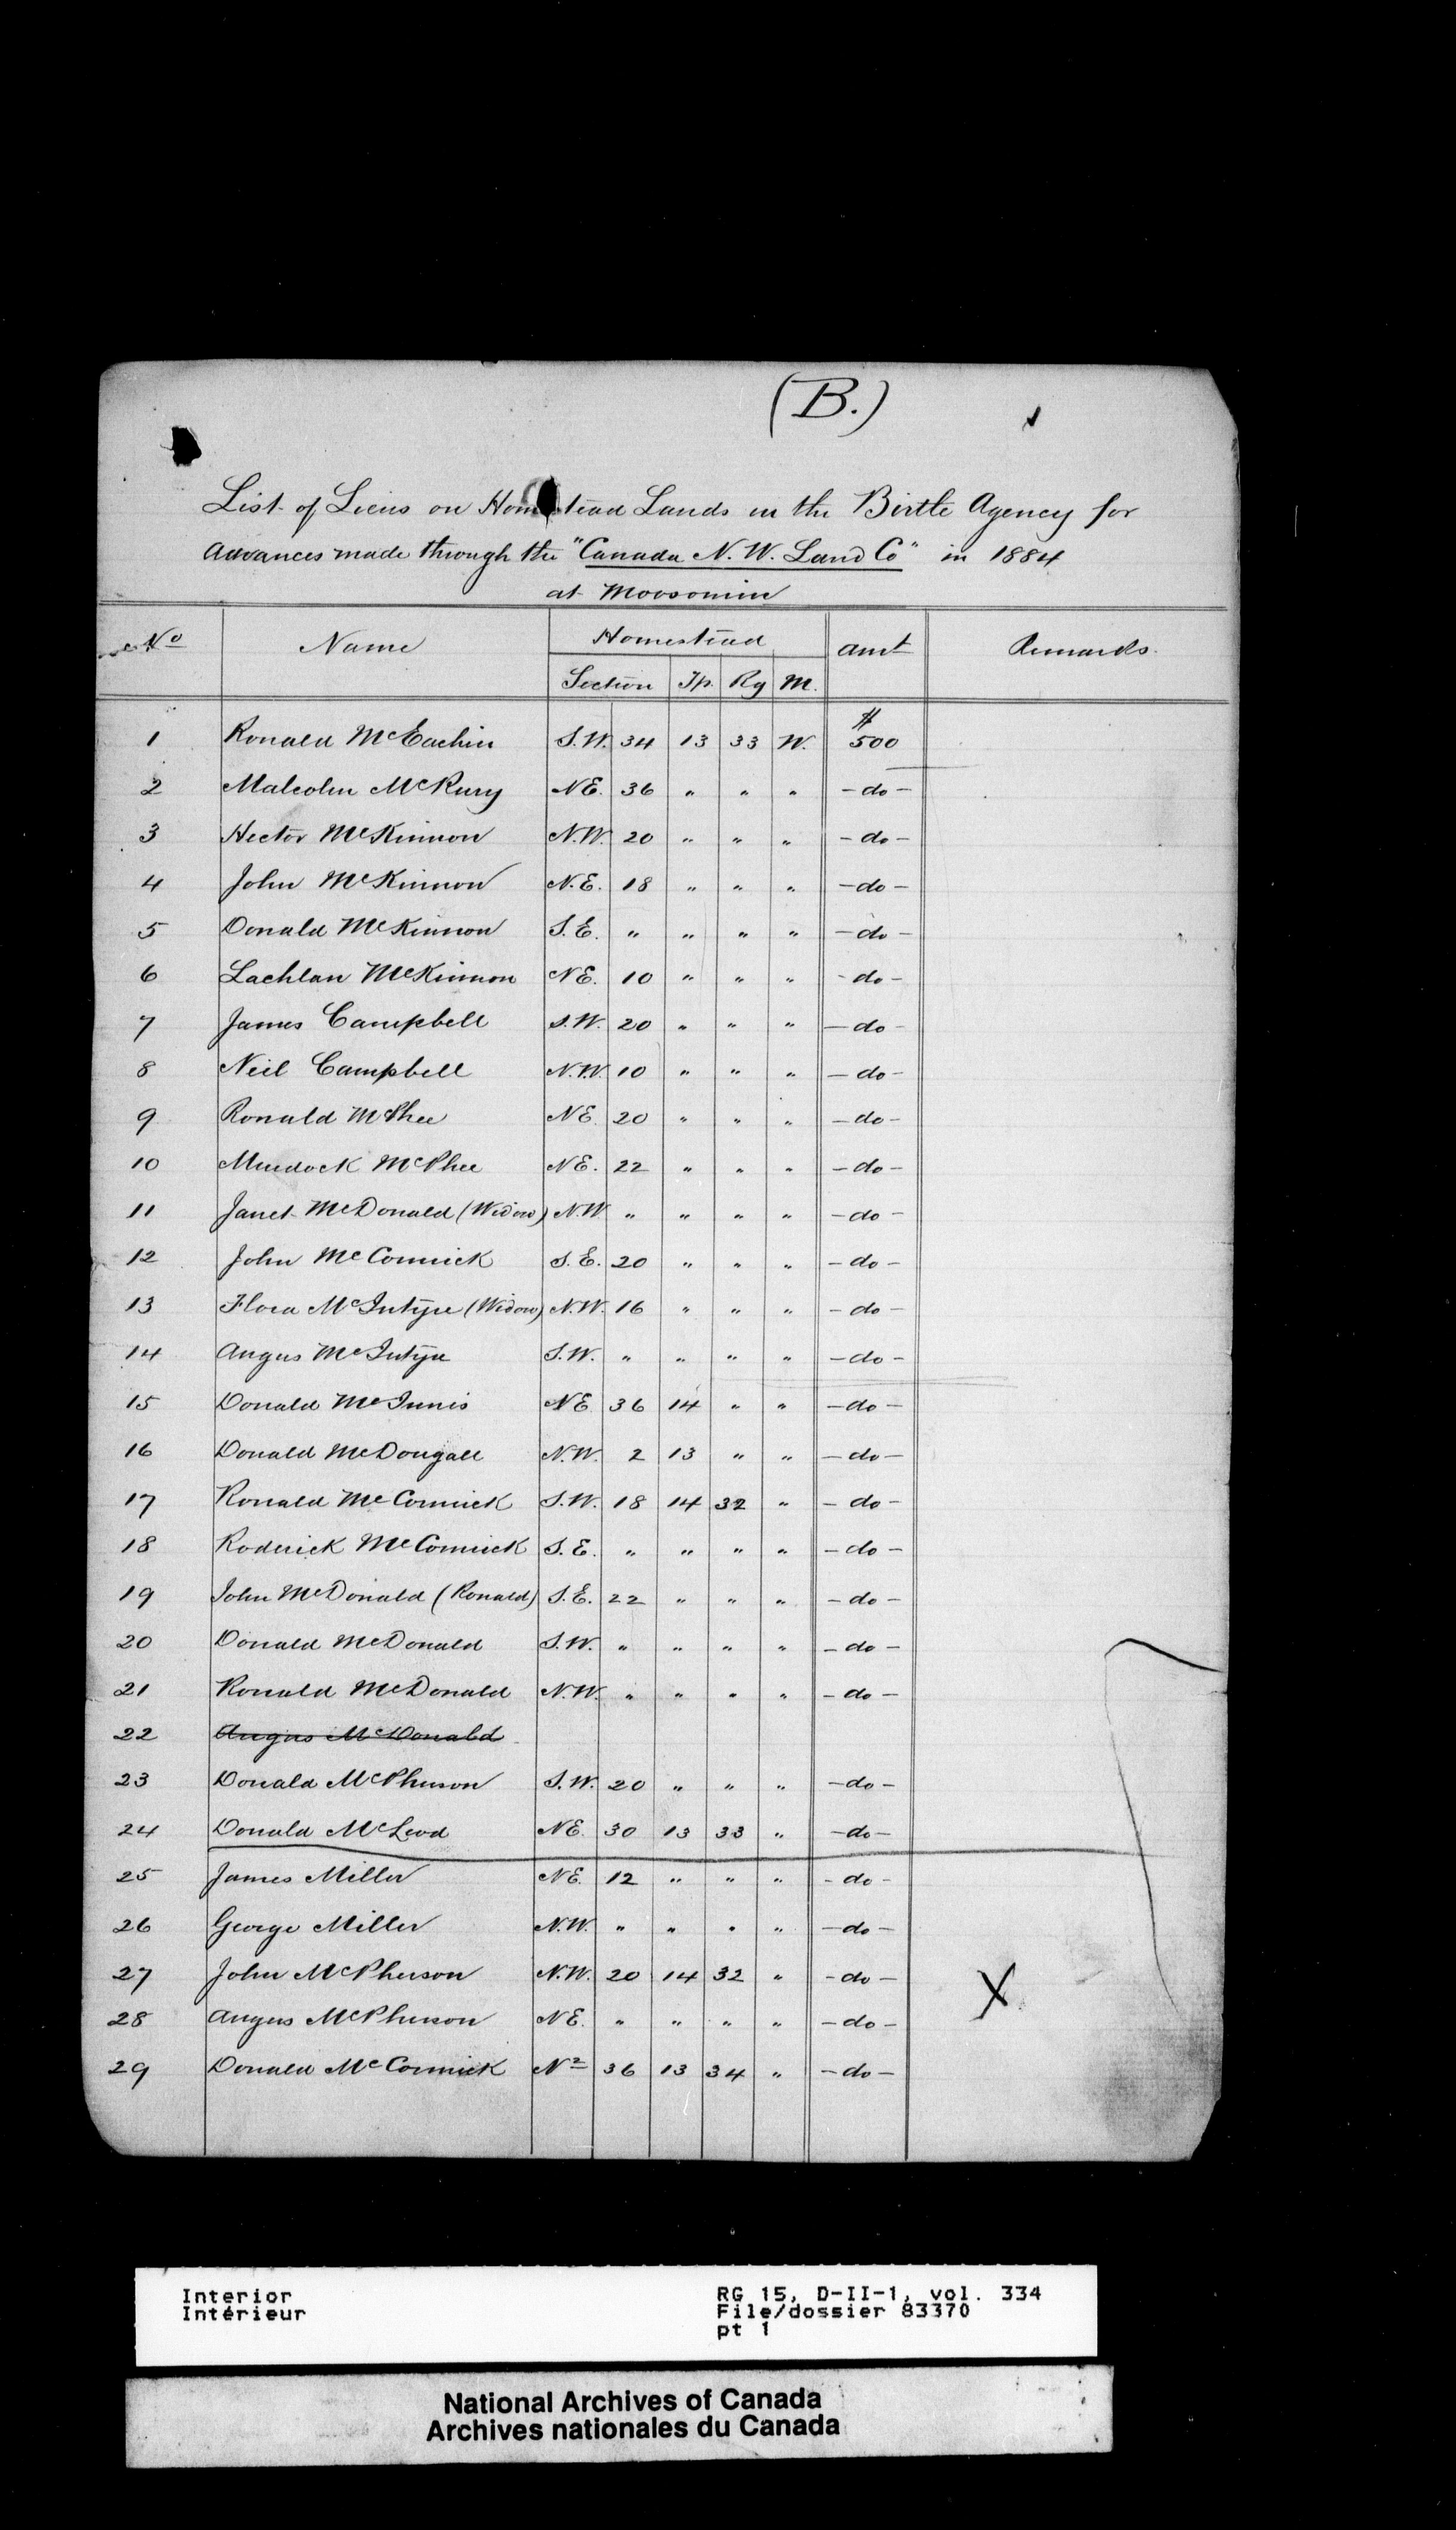 (B.)
List of Liens on Homestead Lands in the Birtle Agency for
Advances made through the "Canada N. W. Land Co" in 1884
at Moosomin
No Name Homestead Amt Remarks
Section Tp. Rg M.
$
1 Ronald McEachin S.W. 34 13 33 W. 500
2 Malcolm McRury NE. 36 " " " - do -
3 Hector McKinnon N.W. 20 " " " - do -
4 John McKinnon N.E. 18 " " " - do -
5 Donald McKinnon S.E. " " " " - do -
6 Lachlan McKinnon NE. 10 " " " - do -
7 James Campbell S.W. 20 " " " - do -
8 Neil Campbell N.W. 10 " " " - do -
9 Ronald McPhee NE. 20 " " " - do -
10 Murdock McPhee NE. 22 " " " - do -
11 Janet McDonald (Widow) N.W " " " " - do -
12 John McCormick S.E. 20 " " " - do -
13 Flora McIntyre (Widow) N.W. 16 " " " - do -
14 Angus McIntyre S.W. " " " " - do -
15 Donald McInnis NE 36 14 " " - do -
16 Donald McDougall N.W. 2 13 " " - do -
17 Ronald McCormick S.W. 18 14 32 " - do -
18 Roderick McCormick S.E. " " " " - do -
19 John McDonald (Ronald) S.E. 22 " " " - do -
20 Donald McDonald S.W. " " " " - do -
21 Ronald McDonald N.W. " " " " - do -
22 Angus McDonald
23 Donald McPherson S.W. 20 " " " - do -
24 Donald McLeod NE. 30 13 33 " - do -
25 James Miller NE. 12 " " " - do -
26 George Miller N.W. " " " " - do -
27 John McPherson N.W. 20 14 32 " - do -
28 Angus McPherson NE. " " " " - do -
29 Donald McCormick N2 36 13 34 " - do -
X
Interior RG 15, D-II-1, vol. 334
Intérieur File/dossier 83370
pt 1
National Archives of Canada
Archives nationales du Canada